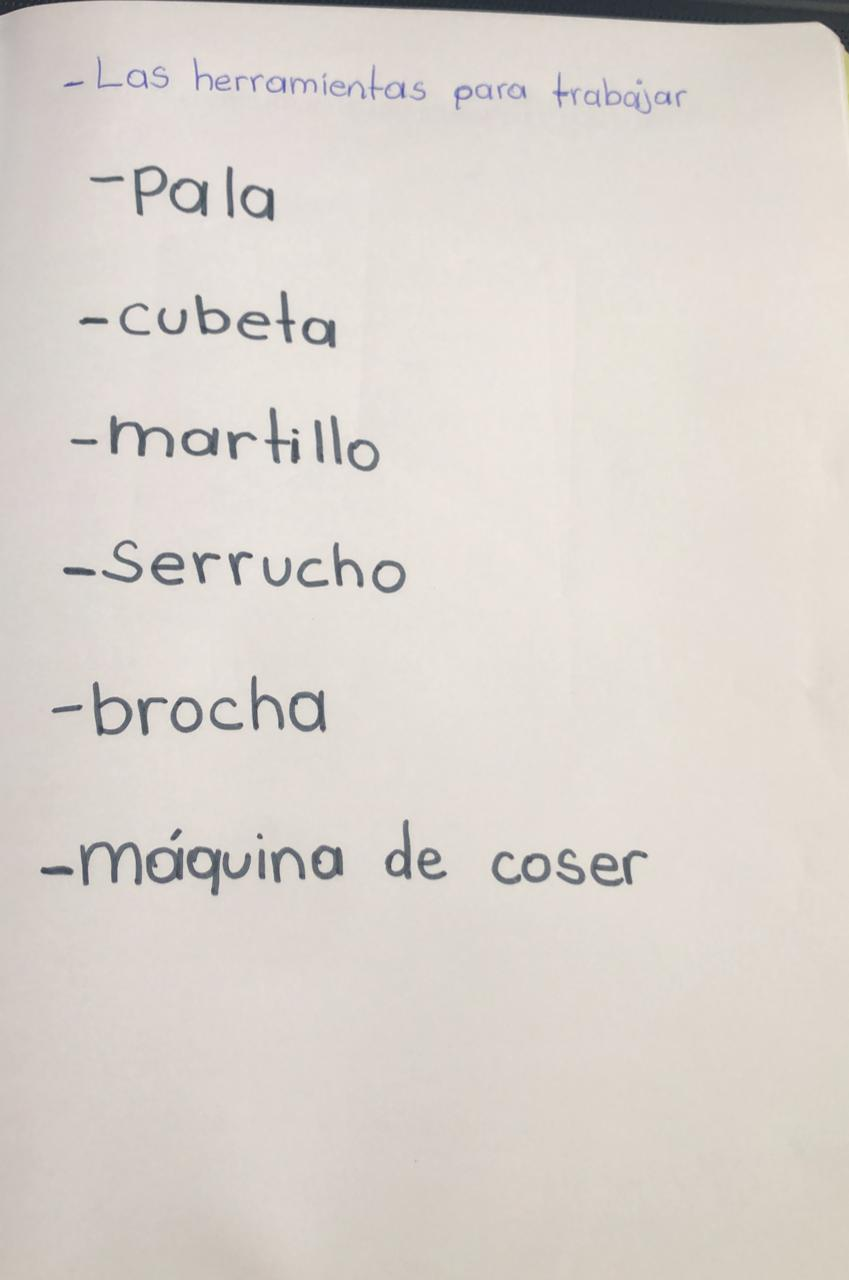 - Las herramientas para trabajar
- Pala
- cubeta
- martillo
- Serrucho
- brocha
- máquina de coser